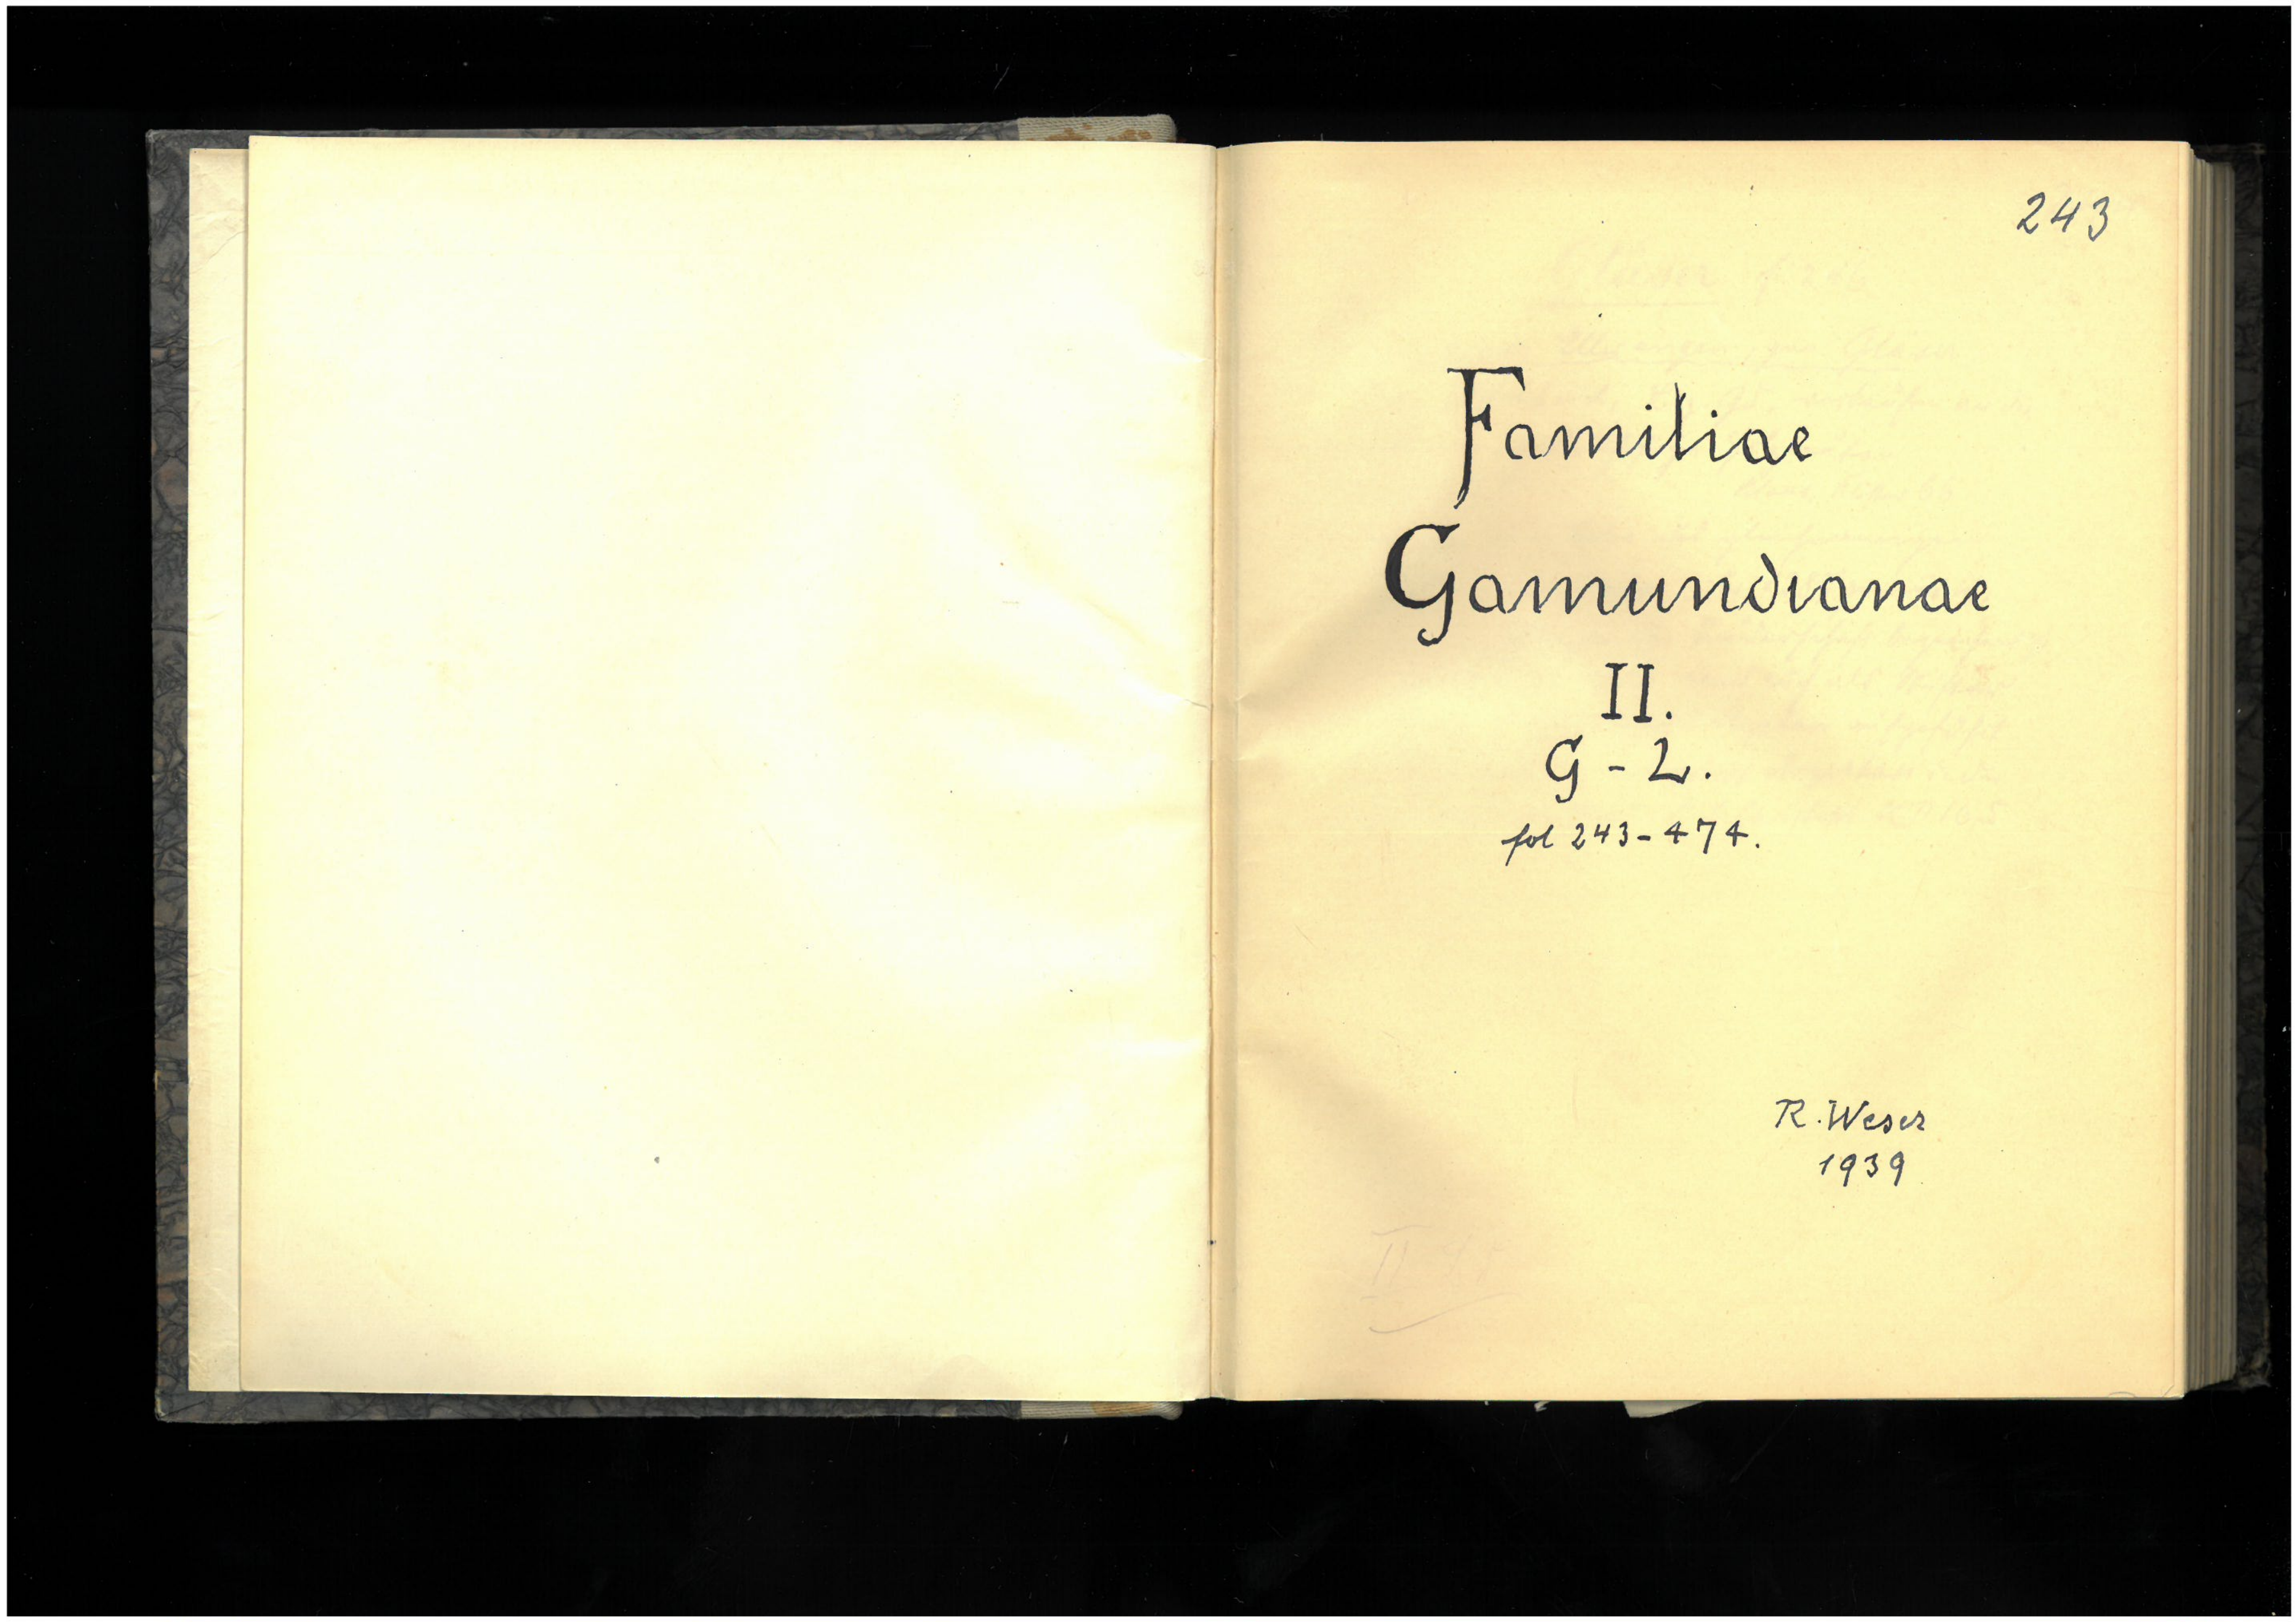 243
Familiae
Gamundianae
II.
G - L.
fol 243 - 474.
R. Weser
1939
II